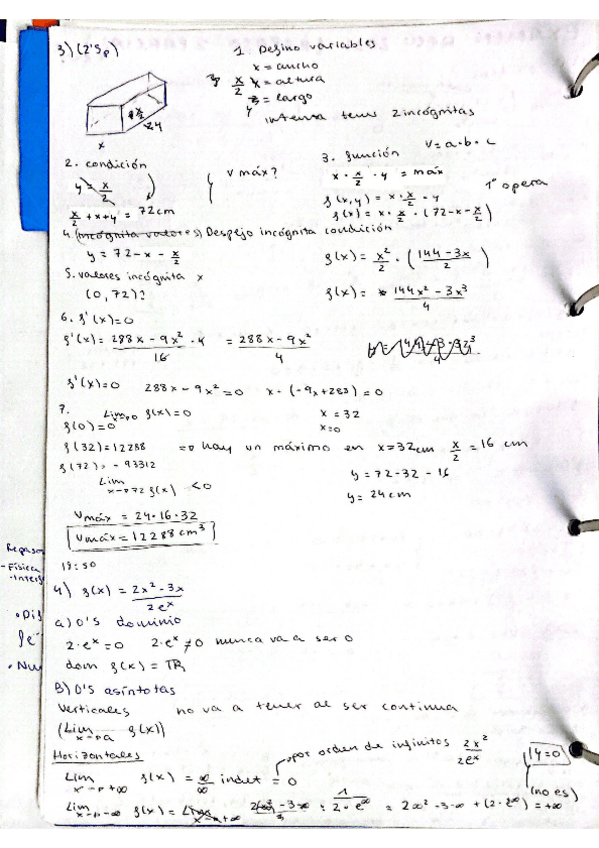 3) (2'5p)
1 Defino variables
x = ancho
x/2 = altura
y = largo
intenta tener 2 incógnitas
x
x/2
y
2. condición
y = x/2
x/2 + x + y = 72cm
V máx?
3. función V = a·b·c
x · x/2 · y = máx
f(x,y) = x · x/2 · y
1º opera
f(x) = x · x/2 · (72-x-x/2)
4. (incógnita valores) Despejo incógnita condición
y = 72 - x - x/2
f(x) = x²/2 · (144-3x/2)
5. valores incógnita x
(0,72)?
f(x) = 144x² - 3x³/4
6. f'(x)=0
f'(x) = 288x - 9x² · 4/16 = 288x - 9x²/4
f'(x)=0 288x - 9x² = 0 x · (-9x+283) = 0
7.
Lim x→0 f(x) = 0
x = 32
x=0
f(0)=0
f(32)=12288 => hay un máximo en x=32cm x/2 = 16 cm
f(72) = -93312
Lim x→72 f(x) < 0
y = 72 - 32 - 16
y = 24 cm
Vmáx = 24·16·32
Vmáx = 12288 cm³
Repaso
-Física
19:50
4) f(x) = 2x² - 3x/2eˣ
a) 0'5 dominio
2·eˣ = 0 2·eˣ ≠ 0 nunca va a ser 0
dom f(x) = ℝ
B) 0'5 asíntotas
Verticales no va a tener al ser continua
(Lim x→a f(x))
Horizontales
por orden de infinitos 2x²/2eˣ
Lim x→+∞ f(x) = ∞/∞ indet = 0
y=0
(no es)
Lim x→-∞ f(x) =